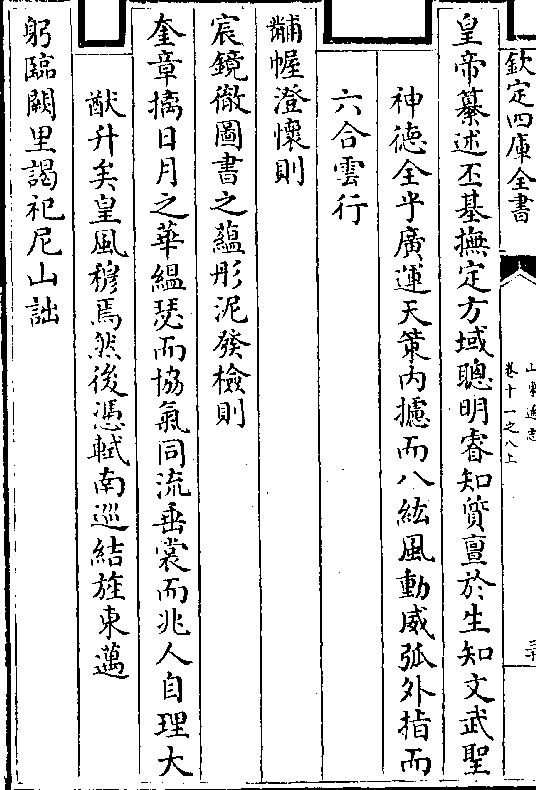 欽定四庫全書
山東通志
卷十一之八上
皇帝纂述丕基撫定方域聰明睿知質亶於生知文武聖
神德全乎廣運天策内攄而八紘風動威弧外指而
六合雲行
黼幄澄懷則
宸鏡徹圖書之藴彤泥發檢則
奎章摛日月之華緼瑟而協氣同流垂裳而兆人自理大
猷升矣皇風穆焉然後憑軾南巡結旌東邁
躬臨闕里謁祀尼山詘